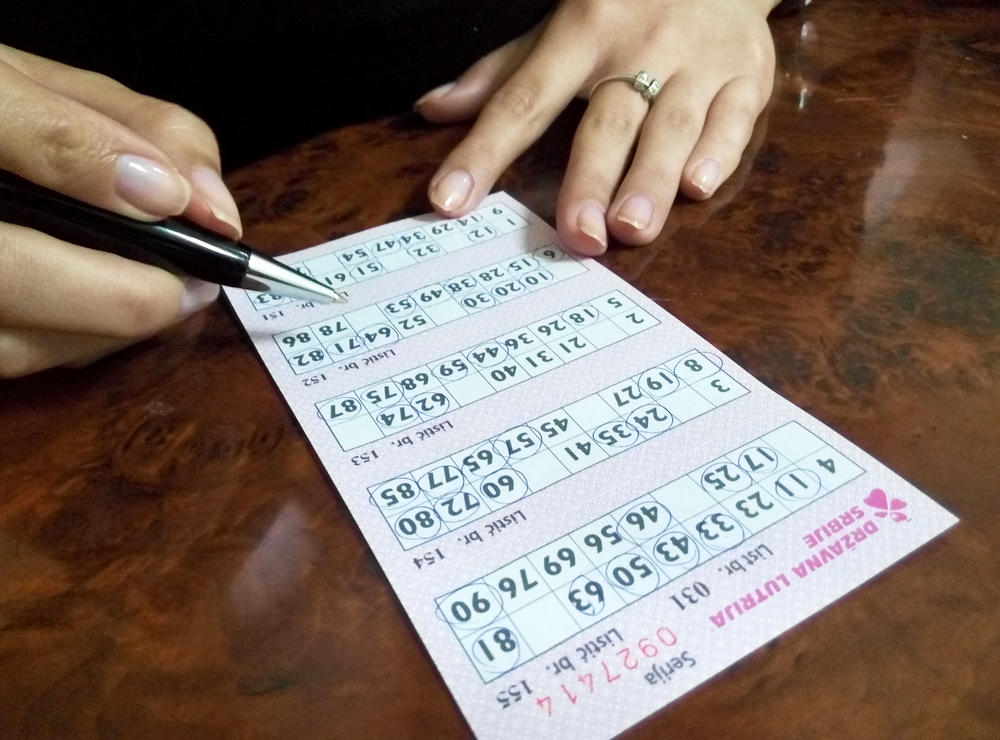 DRŽAVNA LUTRIJA
SRBIJE
Serija
0927414
List br. 031
Listić br. 155
4 11 23 33 43 50 63 81
17 25 46 56 69 76 90
Listić br. 154
3 24 35 41 60 72 80
8 19 27 45 57 65 77 85
Listić br. 153
2 21 31 40 62 74
5 18 26 36 44 59 68 75 87
Listić br. 152
10 20 30 52 64 71 82
6 15 28 38 49 53 78 86
br. 151
1 12 32 51 61 83
9 14 29 34 47 54